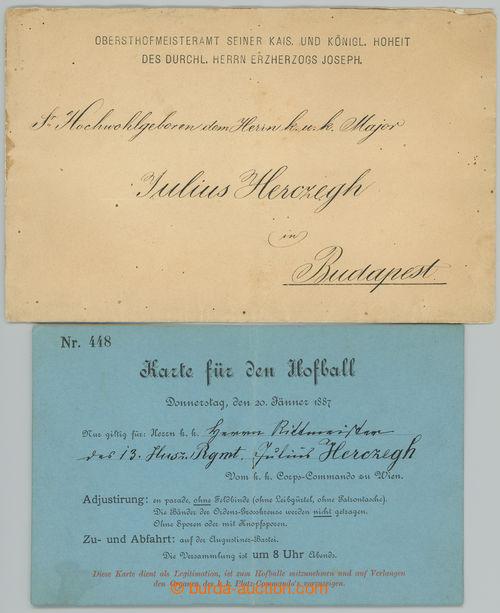 OBERSTHOFMEISTERAMT SEINER KAIS. UND KÖNIGL. HOHEIT
DES DURCHL. HERRN ERZHERZOGS JOSEPH.
Sr. Hochwohlgeboren dem Herrn k. u. k. Major
Julius Herczegh
in
Budapest.
Nr. 448
Karte für den Hofball
Donnerstag, den 20. Jänner 1887
Nur giltig für: Herrn k. k. Herrn Rittmeister
des 13. Husz. Rgmt. Julius Herczegh
Vom k. k. Corps-Commando zu Wien.
Adjustirung: en parade, ohne Feldbinde (ohne Leibgürtel, ohne Patrontasche).
Die Bänder der Ordens-Grosskreuze werden nicht getragen.
Ohne Sporen oder mit Knopfsporen.
Zu- und Abfahrt: auf der Augustiner-Bastei.
Die Versammlung ist um 8 Uhr Abends.
Diese Karte dient als Legitimation, ist zum Hofballe mitzunehmen und auf Verlangen
den Organen des k. k. Platz-Commando's vorzuzeigen.
© burda-auction.com